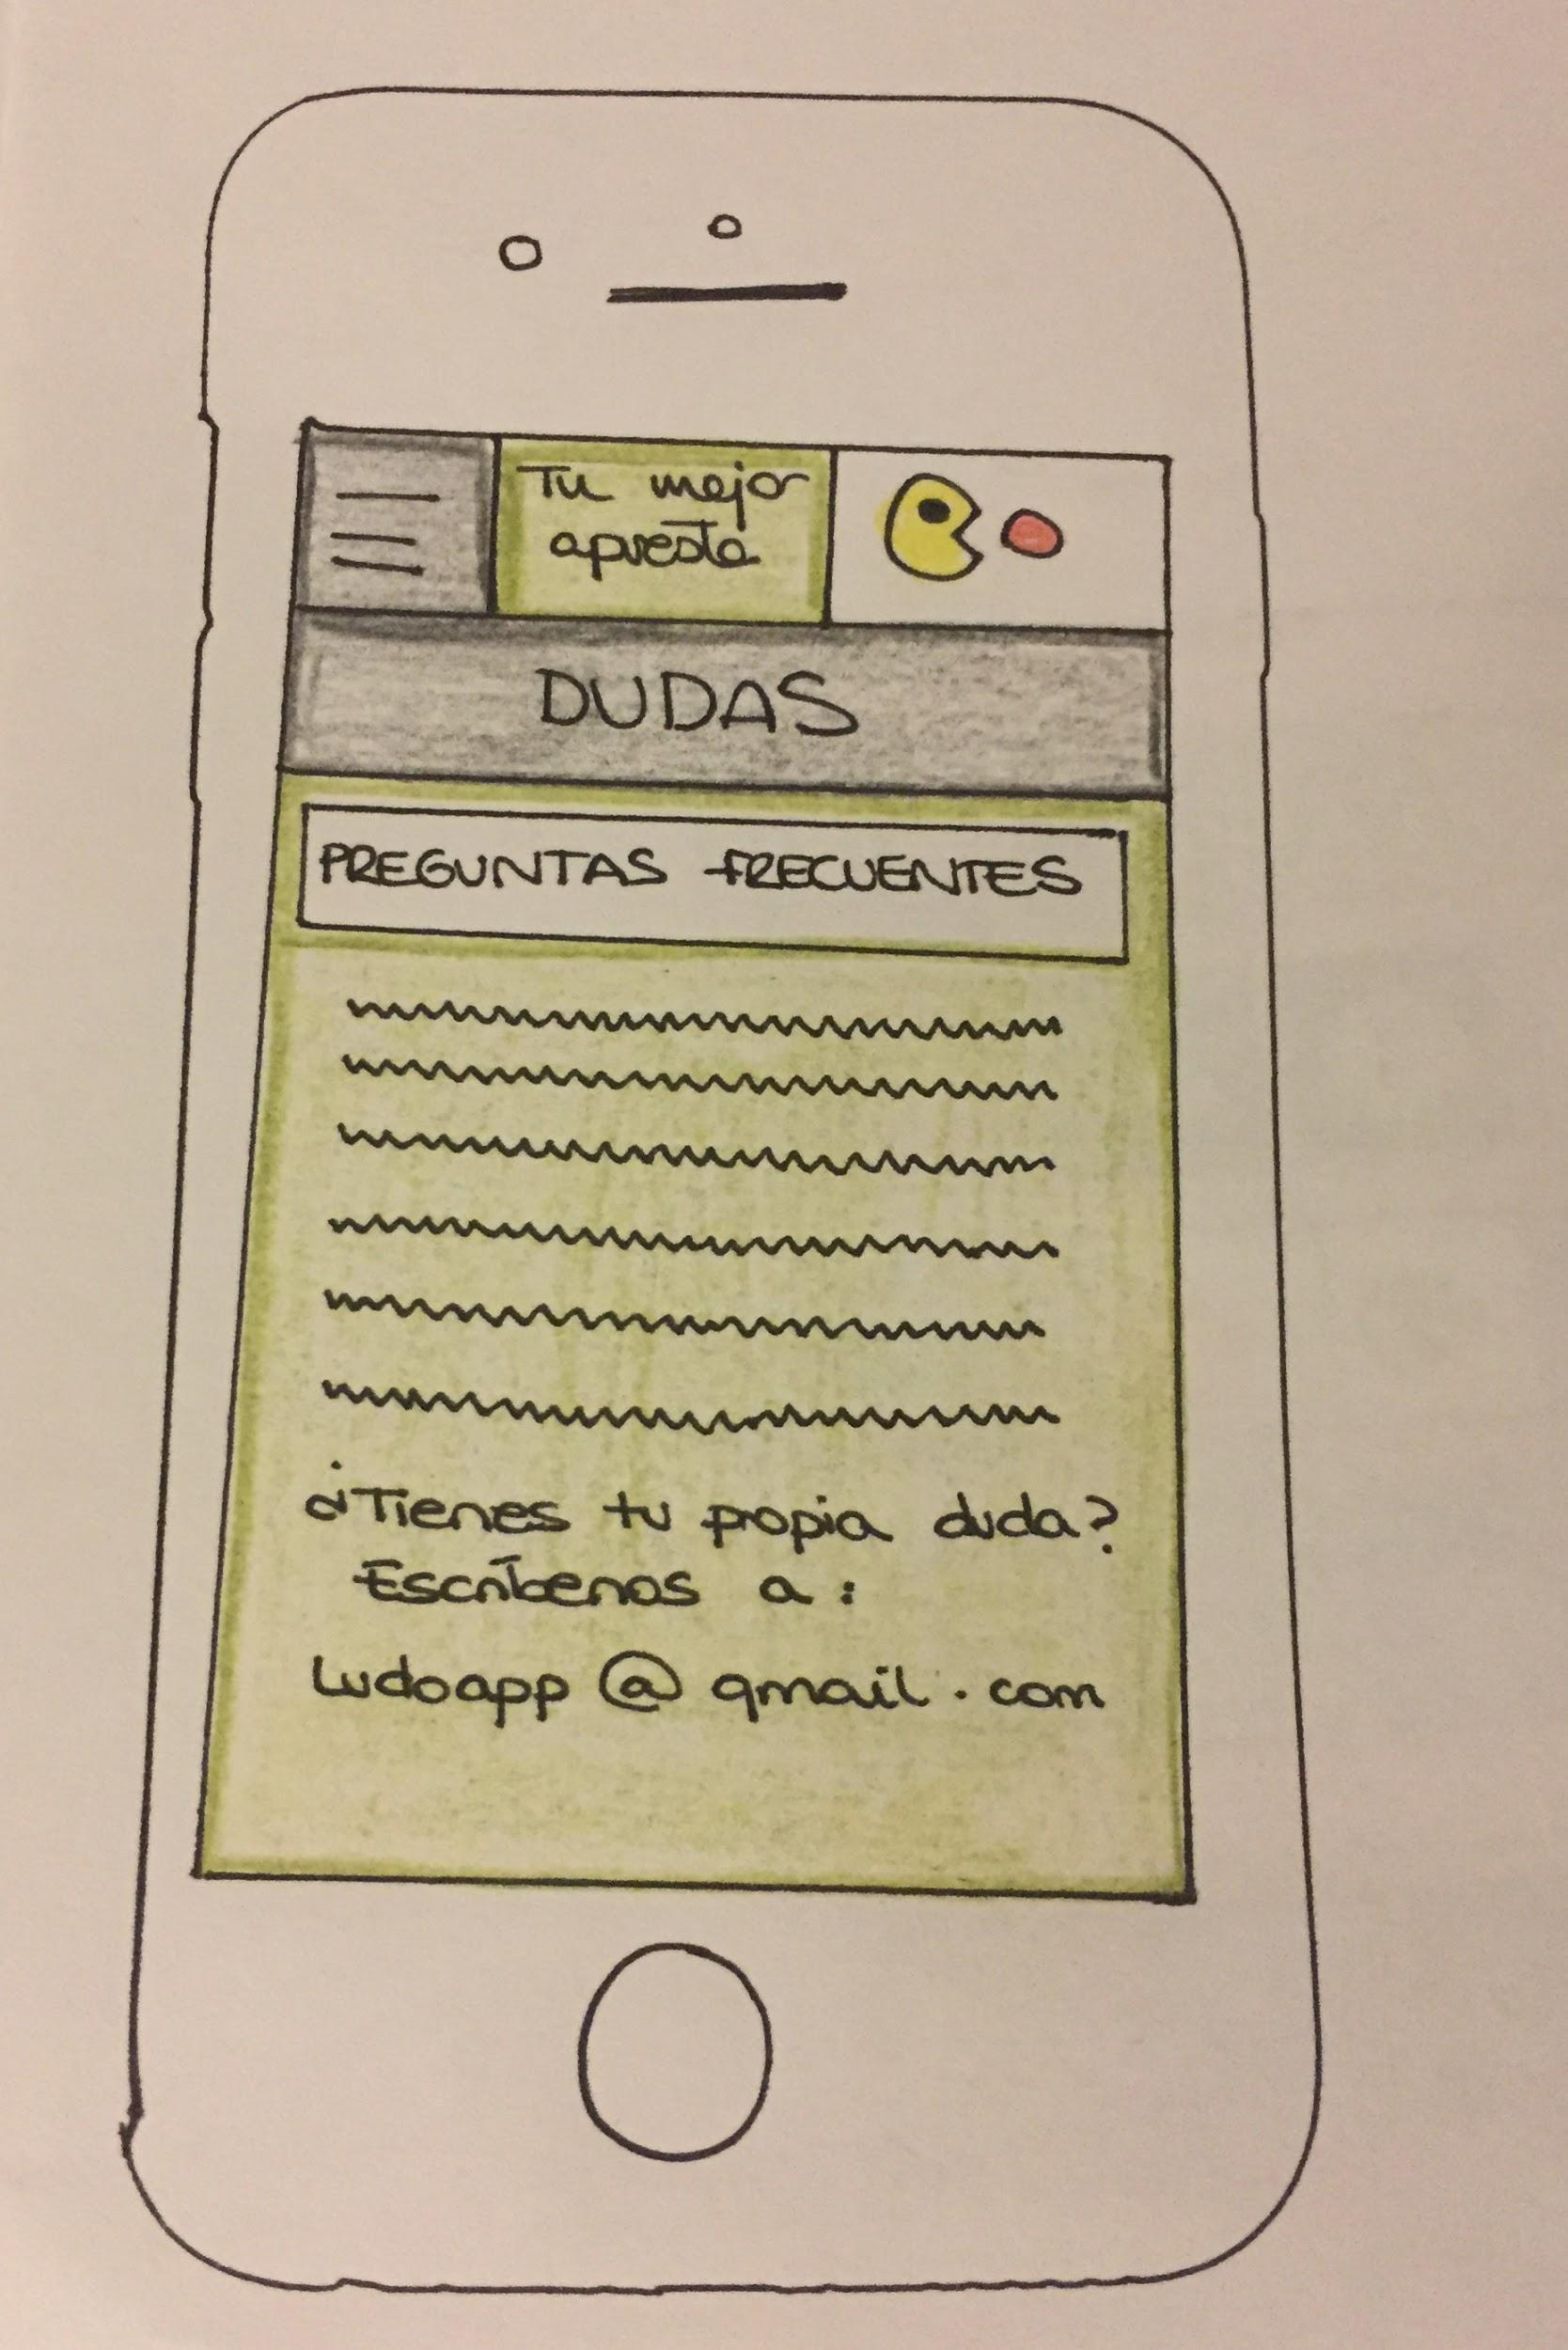 Tu mejor
apuesta
DUDAS
PREGUNTAS FRECUENTES
¿Tienes tu propia duda?
Escríbenos a:
Ludoapp@gmail.com